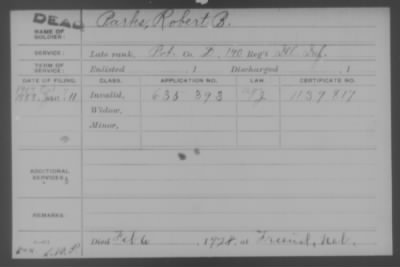 DEAD
NAME OF SOLDIER: Parks, Robert B.
SERVICE: Late rank, Pvt. Co. D, 140 Reg't Ill. Inf.
TERM OF SERVICE: Enlisted , 1 Discharged , 1
DATE OF FILING. CLASS. APPLICATION NO. LAW. CERTIFICATE NO.
Jan. 11 Invalid, 635 393 1139817
Widow,
Minor,
ADDITIONAL SERVICES:
REMARKS:
Died Feb 6, 1928, at Friend, Neb.